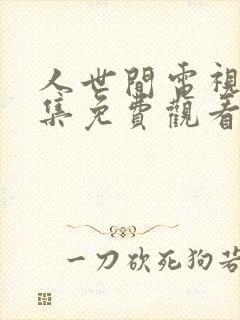 人世間電視
集免費觀看
一刀砍死狗若